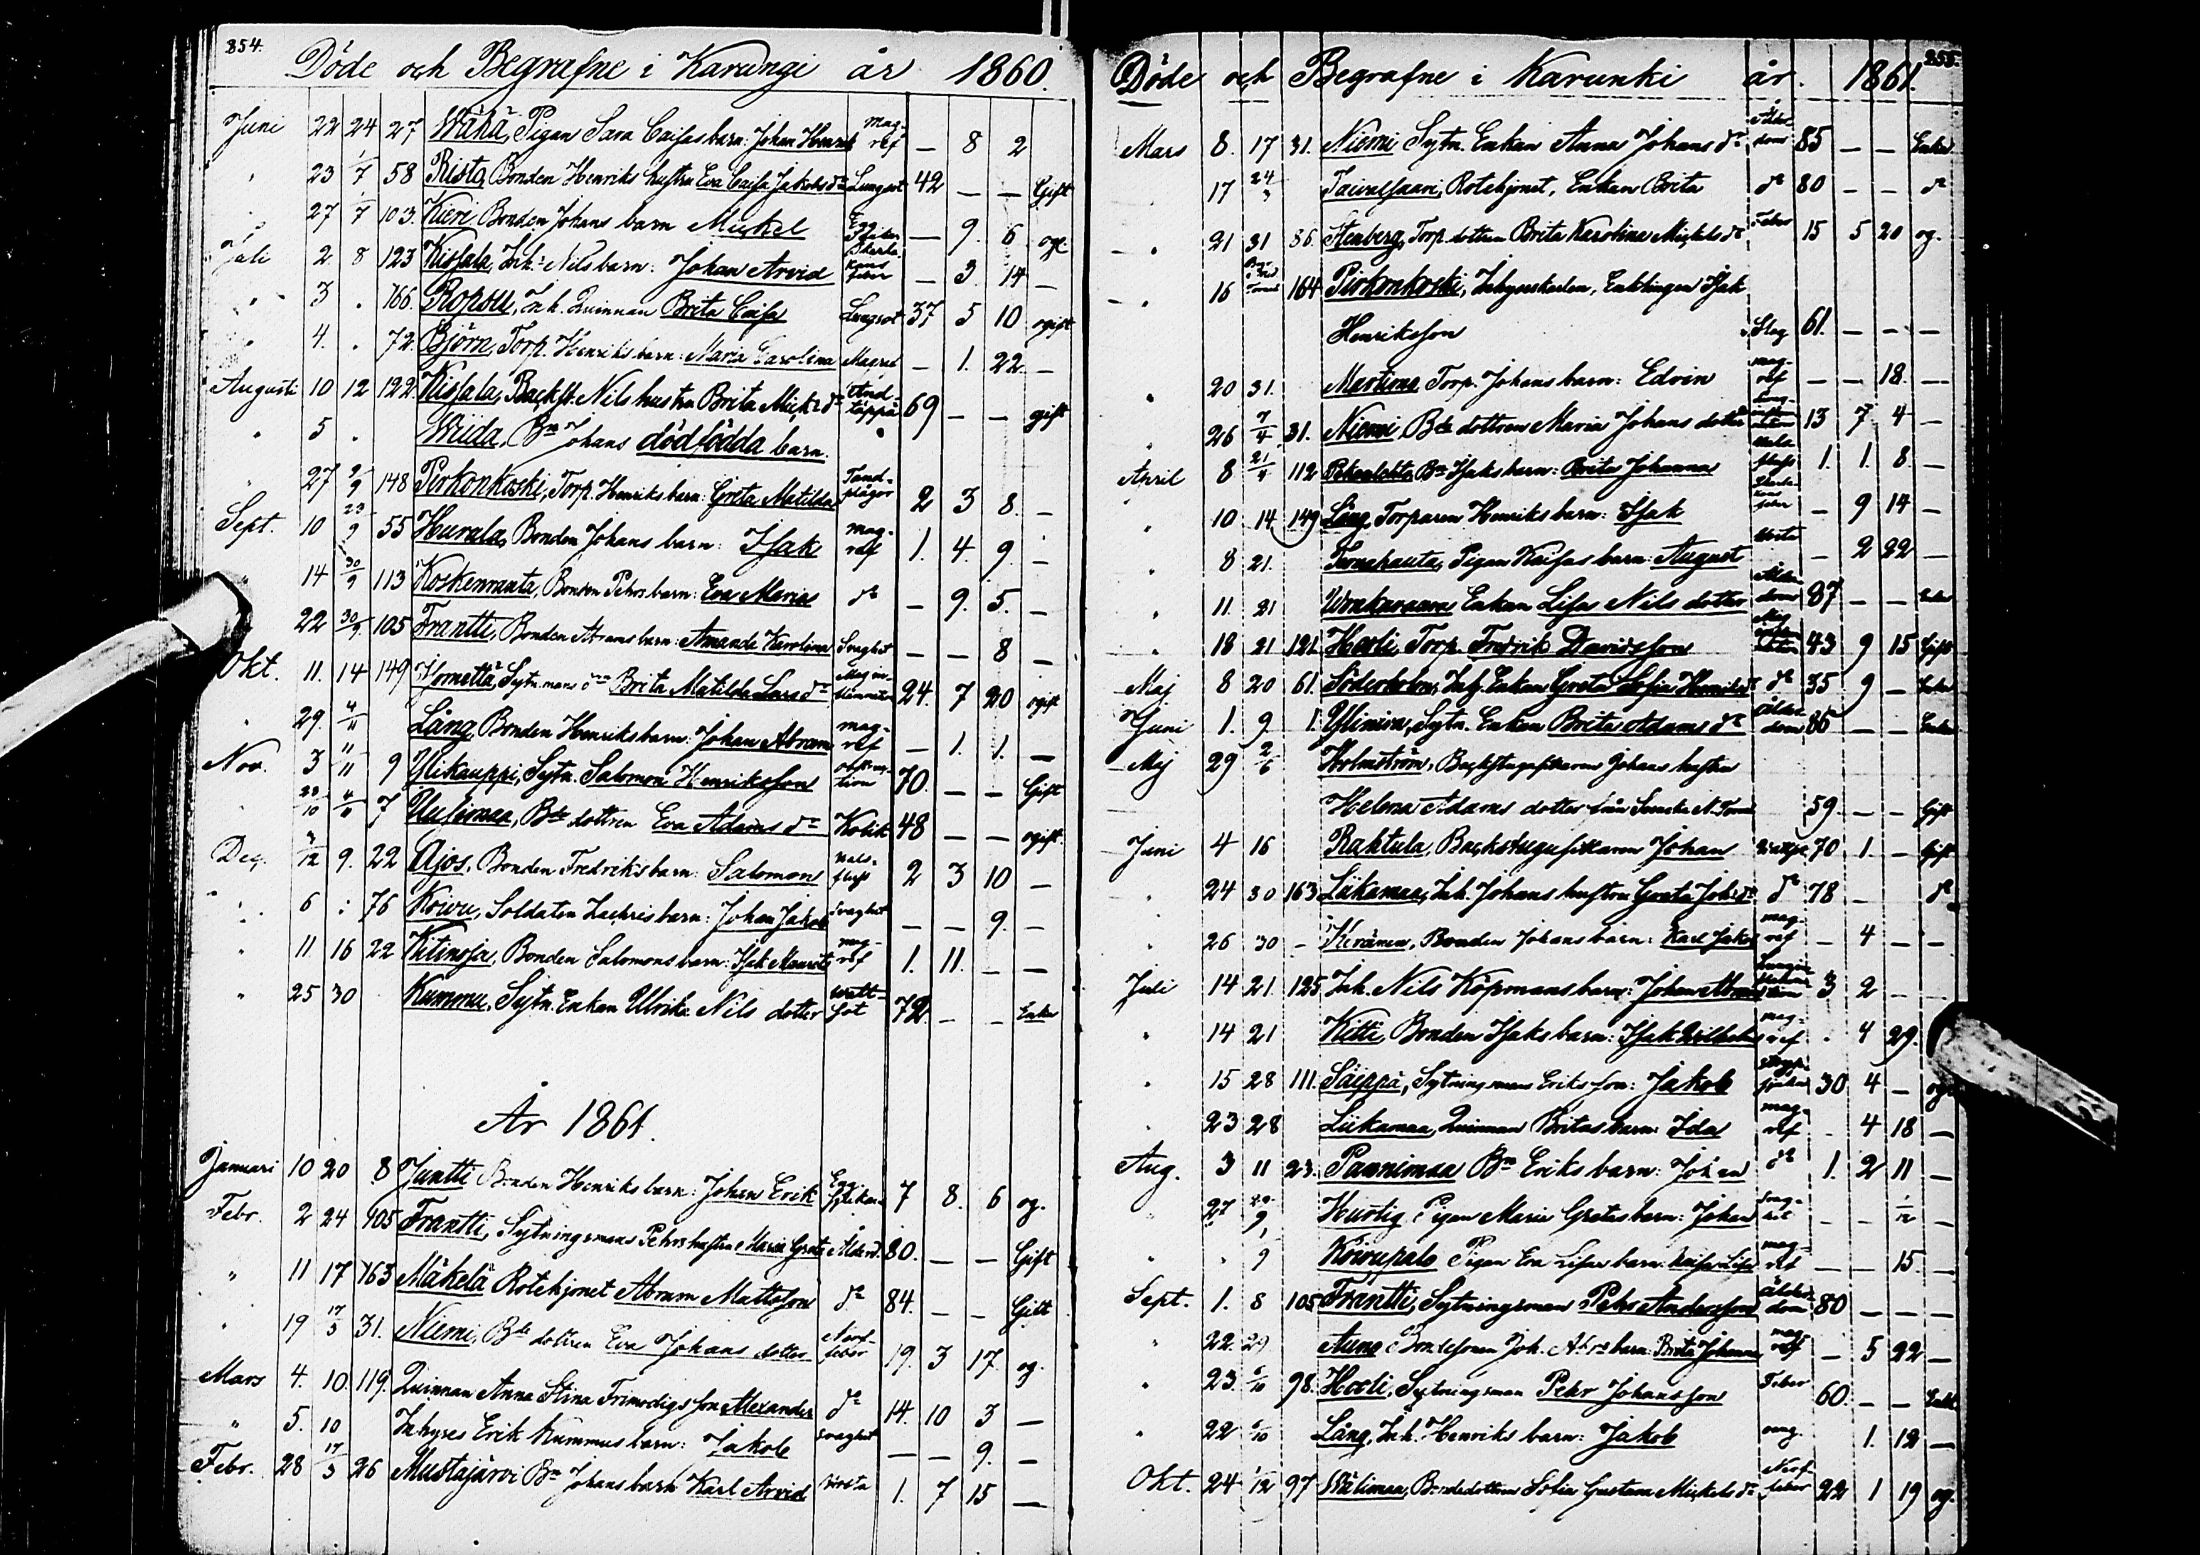 254.
Döde och Begrafne i Karungi år 1860.
Juni 22 24 27 Wähä, Pigan Sara Caisas barn: Johan Henrik Mag-ref — 8 2
" 23 1/7 58 Risto, Bonden Henriks hustru Eva Caisa Jakobs dr Lungsot 42 — — Gift
" 27 1/7 103. Kieri Bonden Johans barn Mickel — 9. 6 ogi.
Juli 2 8 123 Kissala, Inh. Nils barn: Johan Arvid Skarla-kans feber — 3. 14 —
" 3 . 166. Ropou, Inh. Quinnan Brita Caisa Lungsot 37 5 10 ogift
" 4. . 72. Björn, Torp. Henriks barn: Maria Carolina Magref — 1. 22. —
Augusti 10 12 122. Kissala, Backst. Nils hustru Brita Mick: dr And-täppa 69 — — gift
" 5 . Wiida, Bn Johans dödfödda barn.
" 27 2/9 148 Pirkonkoski, Torp. Henriks barn: Greta Matilda Tand-plågor 2 3 8. —
Sept. 10 23/9 55 Hurula, Bonden Johans barn: Isak mag-ref 1. 4. 9. —
" 14 30/9 113 Koskenranta, Bonden Pehrs barn: Eva Maria do — 9. 5. —
22 30/9 105 Frantti, Bonden Abrams barn: Amanda Karolina Svaghet — — 8 —
Okt. 11. 14 149 Jornetta, Sytn.mans dr Brita Matilda Lars dr Mag in-flammation 24. 7 20 ogift
" 29. 4/11 Lång, Bonden Henriks barn: Johan Abram mag-ref — 1. 1. —
Nov. 3 11/11 9 Ylikauppi, Sytn. Salomon Henriksson obstruc-tion 70. — — Gift
" 28/10 4/11 7 Uusimaa, Bde dottren Eva Adams dr Kolik 48 — — ogift.
Dec. 2/12 9. 22 Ajos, Bonden Fredriks barn: Salomon Hals-fluss 2 3 10 —
" 6 : 76 Koivu, Soldaten Zachris barn: Johan Jakob Svaghet — — 9. —
" 11 16 22 Kitinoja, Bonden Salomons barn: Isak Maurits mag-ref 1. 11. — —
" 25 30 Kummu, Sytn. Enkan Ulrika Nils dotter Watt-sot 72. — — Enka
År 1861.
Januari 10 20 8 Juntti Bonden Henriks barn: Johan Erik 7 8. 6 og.
Febr. 2 24 105 Frantti, Sytningsmans Pehrs hustru Maria Greta Ålderd. 80. — — Gift
" 11 17 163 Mäkelä Rotehjonet Abram Mattsson do 84. — — Gift
" 19 17/3 31. Niemi, Bde dottren Eva Johans dotter Nerf-feber 19. 3 17. og.
Mars 4. 10. 119. Quinnan Anna Stina Frimodigs son Alexander do 14. 10 3 —
" 5. 10 Inhyses Erik Kummus barn: Jakob Svaghet — — 9. —
Febr. 28 17/3 26 Mustajärvi Bn Johans barn Karl Arvid Wirsta 1. 7 15 —
255.
Döde och Begrafne i Karunki år. 1861.
Mars 8. 17 31. Niemi Sytn. Enkan Anna Johans dr Ålder-dom 85 — — Enka
" 17 24/3 Taivalsaari, Rotehjonet, Enkan Brita do 80 — — do
" 21 31 86. Stenberg, Torp. dottren Brita Karolina Mickels dr Feber 15 5 20 og.
" 16 164 Pirkonkoski, Inhyseskarlen, Enklingen Isak
Henriksson Slag 61. — — —
" 20 31. Martima Torp. Johans barn: Edvin mag-ref — — 18. —
" 26 7/4 31. Niemi, Bde dottren Maria Johans dotter 13 7 4 —
April 8 21/4 112 Bn Isaks barn: Brita Johanna Hals-fluss 1. 1. 8. —
" 10 14 149 Lång, Torparen Henriks barn: Isak Skarla-kans feber — 9 14 —
" 8 21. Pigan Kaisas barn: August — 2 22 —
" 11. 21 Enkan Lisa Nils dotter Ålder-dom 87 — — Enka
" 18 21 121. Hooli, Torp. Fredrik Davidsson 43 9 15 Gift
Maj 8 20 61. Söderholm, Inh. Enkan Greta Sofia Henriks dr do 35 9 — Enka
Juni 1. 9. 1. Yliniva, Sytn. Enkan Brita Adams dr Ålder-dom 86 — — Enka
Maj 29 2/6 Holmström, Backstugusittaren Johans hustru
Helena Adams dotter från Svenska N. Torneå 59. — — Gift
Juni 4 16 Raktula, Backstugusittaren Johan 70 1. — Gift
" 24 30 163 Liikamaa, Inh. Johans hustru Greta Joh: dr do 78 — do
" 26 30 — Keränen, Bonden Johans barn: Karl Jakob mag-ref — 4 — —
Juli 14 21 125 Inh. Nils Köpmans barn: Johan Abram 3 2 — —
" 14 21 Kitti, Bonden Isaks barn: Isak Wilhelm mag-ref . 4 29.
" 15 28 111. Säippä, Sytningsmans Eriks son: Jakob 30 4 — og.
" 23 28 Liikamaa, Quinnan Britas barn: Ida mag-ref . 4 18 —
Aug. 3 11 23. Pannimaa Bn Eriks barn: Johan do 1. 2 11 —
" 27 Hurtig, Pigan Maria Gretas barn: Johan — — 1/12 —
" " 9 Koivupalo Pigan Eva Lisas barn: Kaisa Lisa mag-ref — — 15. —
Sept. 1. 8 105 Frantti, Sytningsman Pehr Andersson ålder-dom 80 — — —
" 22. 29 Auno Bondesonen Joh. barn: Brita Johanna mag-ref — 5 22 —
" 23. 6/10 98. Hooli, Sytningsman Pehr Johansson Feber 60. — — Enkl.
" 22 6/10 Lång, Inh. Henriks barn: Jakob mag. 1. 12 —
Okt. 24 1/12 97 Wälimaa, Bondedottren Sofia Gustava Mickels dr Nerf-feber 22 1 19 og.